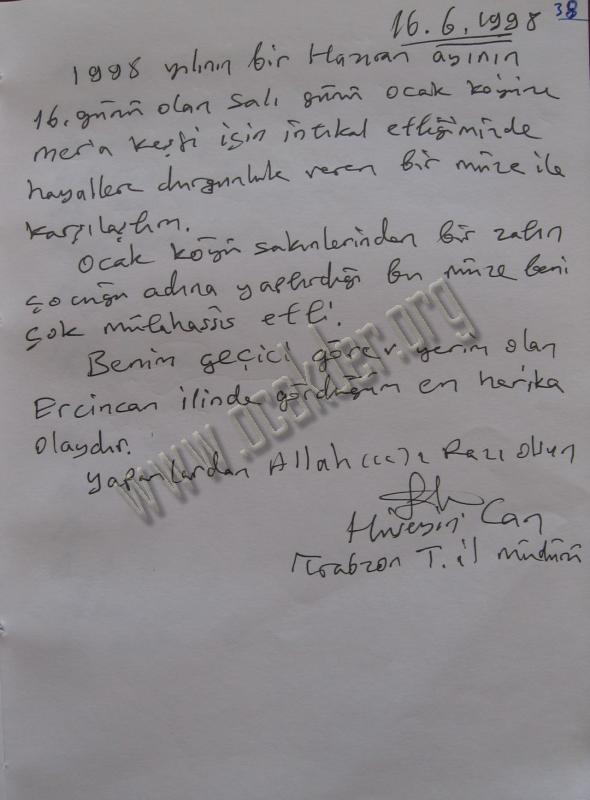 38
16.6.1998
1998 yılının bir Haziran ayının
16. günü olan Salı günü Ocak köyüne
mer'a keşfi için intikal ettiğimizde
hayallere durgunluk veren bir müze ile
karşılaştım.
Ocak köyü sakinlerinden bir zatın
çocuğu adına yaptırdığı bu müze beni
çok mütahassis etti.
Benim geçici görev yerim olan
Ercincan ilinde gördüğüm en harika
olaydır.
Yapanlardan Allah (cc) Razı olsun
Hüseyin Can
Trabzon T. il müdürü
www.ocakder.org